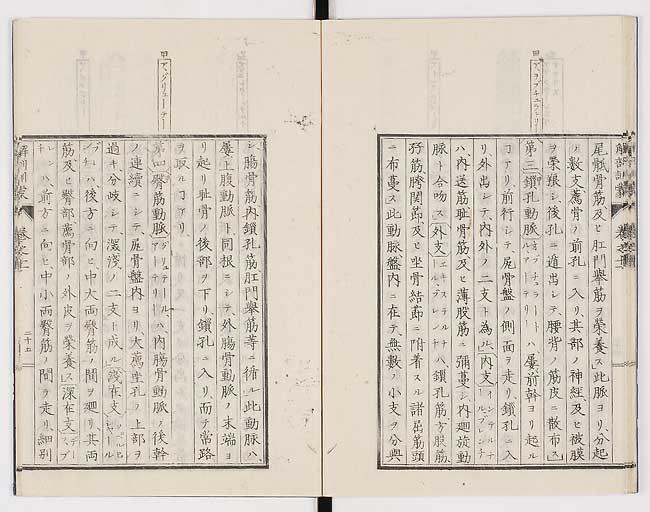 尾骶骨筋及ヒ肛門擧筋ヲ榮養ス此脉ヨリ分起
ノ數支薦骨ノ前孔ニ入リ其部ノ神經及ヒ被膜
ヲ榮養シ後孔ニ進出シテ腰背ノ筋皮ニ散布ス
第三鎖孔動脉 ハ屢前幹ヨリ起ル
コアリ前行シテ尾骨盤ノ側面ヲ走リ鎖孔ニ入
リ外出シテ内外ノ二支ト為ル内支
ハ内送筋耻骨筋及ヒ薄股筋ニ彌蔓シ内廻旋動
脉ト合吻ス外支 ハ鎖孔筋方股筋
孖筋髀關節及ヒ坐骨結節ニ附着スル諸屈筋頭
ニ布蔓ス此動脉盤内ニ在テ無數ノ小支ヲ分與
シ腸骨筋内鎖孔筋肛門擧筋等ニ循ル此動脉ハ
屢上腹動脉ト同根ニシテ外腸骨動脉ノ末端ヨ
リ起リ耻骨ノ後部ヲ下リ鎖孔ニ入リ而テ常路
ヲ取ルコアリ
甲アヽグリューテー
第四臀筋動脉 ハ内腸骨動脉ノ後幹
ノ連續ニシテ尾骨盤内ヨリ大薦坐孔ノ上部ヲ
過キ分岐シテ深淺ノ二支ト成ル淺在支
ハ後方ニ向ヒ中大両臀筋ノ間ヲ廻リ其両
筋及ヒ臀部薦骨部ノ外皮ヲ榮養ス深在支
ハ前方ニ向ヒ中小両臀筋ノ間ヲ走リ細別
解剖訓蒙
卷之十一
二十五